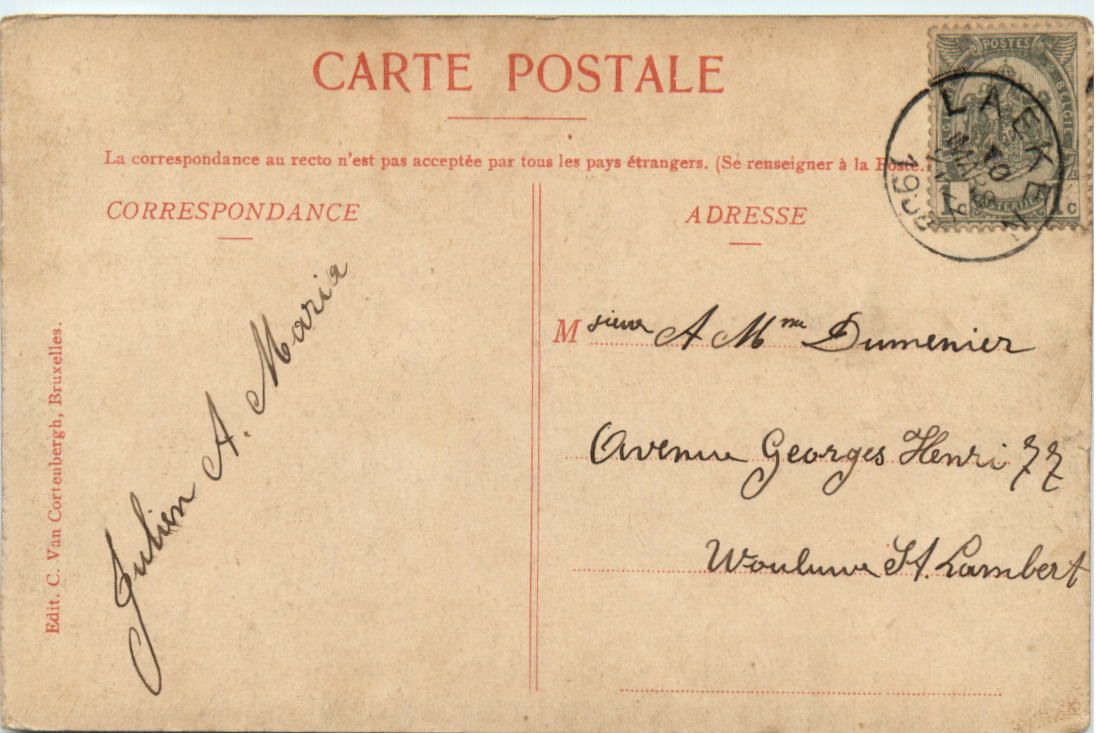 CARTE POSTALE
La correspondance au recto n'est pas acceptée par tous les pays étrangers. (Se renseigner à la Poste.)
CORRESPONDANCE
ADRESSE
POSTES
BELGIE
1 c
LAEKEN
10
MARS
1908
Julien A. Maria
Msieur A Mme Dumenier
Avenue Georges Henri 77
Wouluwe St. Lambert
Edit. C. Van Cortenbergh, Bruxelles.